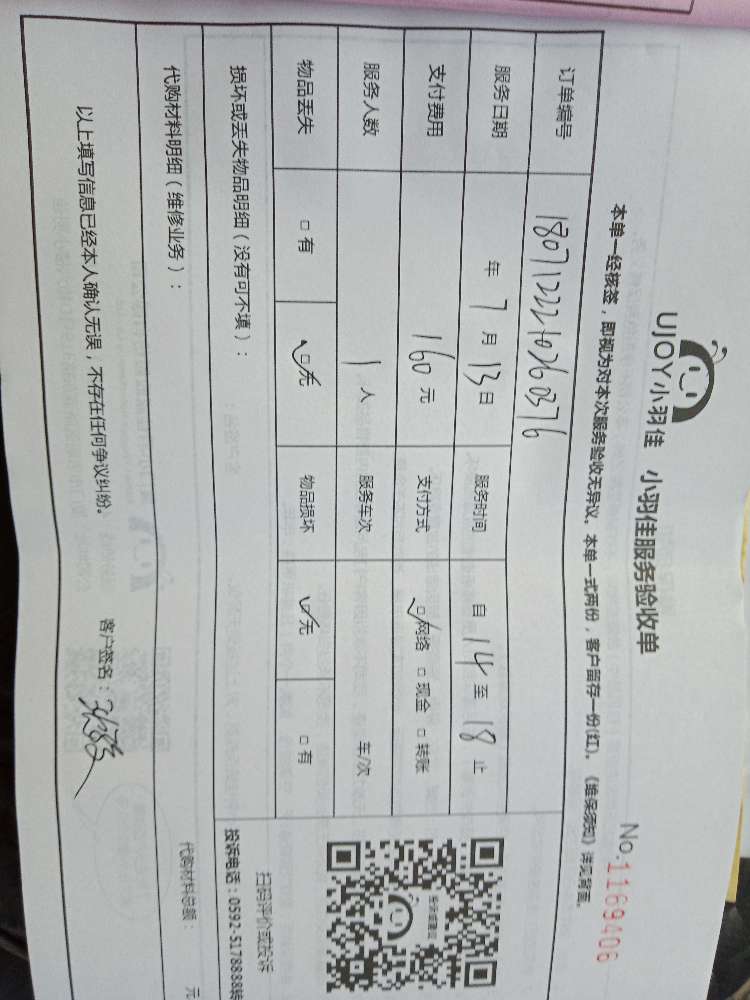 UJOY小羽佳 小羽佳服务验收单
No.1169406
本单一经核签，即视为对本次服务验收无异议。本单一式两份，客户留存一份(红)。《维保须知》详见背面。
订单编号 180712221026 0376
服务日期 年 7 月 13 日 服务时间 自 14 至 18 止
支付费用 160 元 支付方式 □网络 □现金 □转账
服务人数 1 人 服务车次 车/次
物品丢失 □有 □无 物品损坏 □无 □有
损坏或丢失物品明细（没有可不填）：
扫码评价或投诉
投诉电话：0592-5178888转
代购材料明细（维修业务）：
代购材料总额： 元
以上填写信息已经本人确认无误，不存在任何争议纠纷。
客户签名：